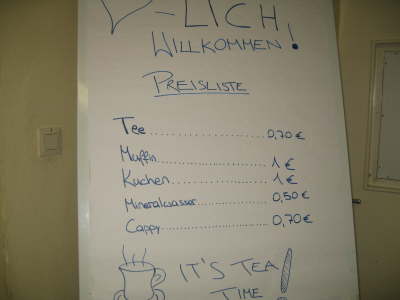 -LICH
WILLKOMMEN!
PREISLISTE
Tee............0,70€
Muffin............1€
Kuchen............1€
Mineralwasser............0,50€
Cappy............0,70€
IT'S TEA
TIME!